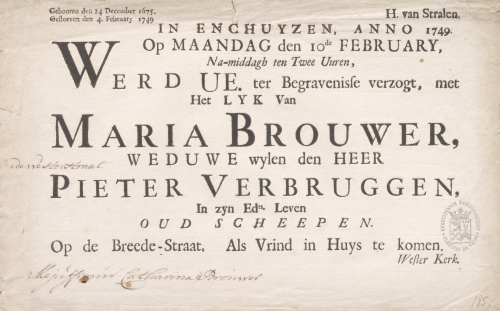 Gebooren den 24 December 1675,
Gestorven den 4. February 1749
H. van Stralen.
IN ENCHUYZEN, ANNO 1749.
Op MAANDAG den 10de FEBRUARY,
Na-middagh ten Twee Uuren,
WERD UE. ter Begravenisse verzogt, met
Het LYK Van
MARIA BROUWER,
WEDUWE wylen den HEER
PIETER VERBRUGGEN,
In zyn Edn. Leven
OUD SCHEEPEN.
Op de Breede-Straat, Als Vrind in Huys te komen.
Wester Kerk.
Catharina Brouwer